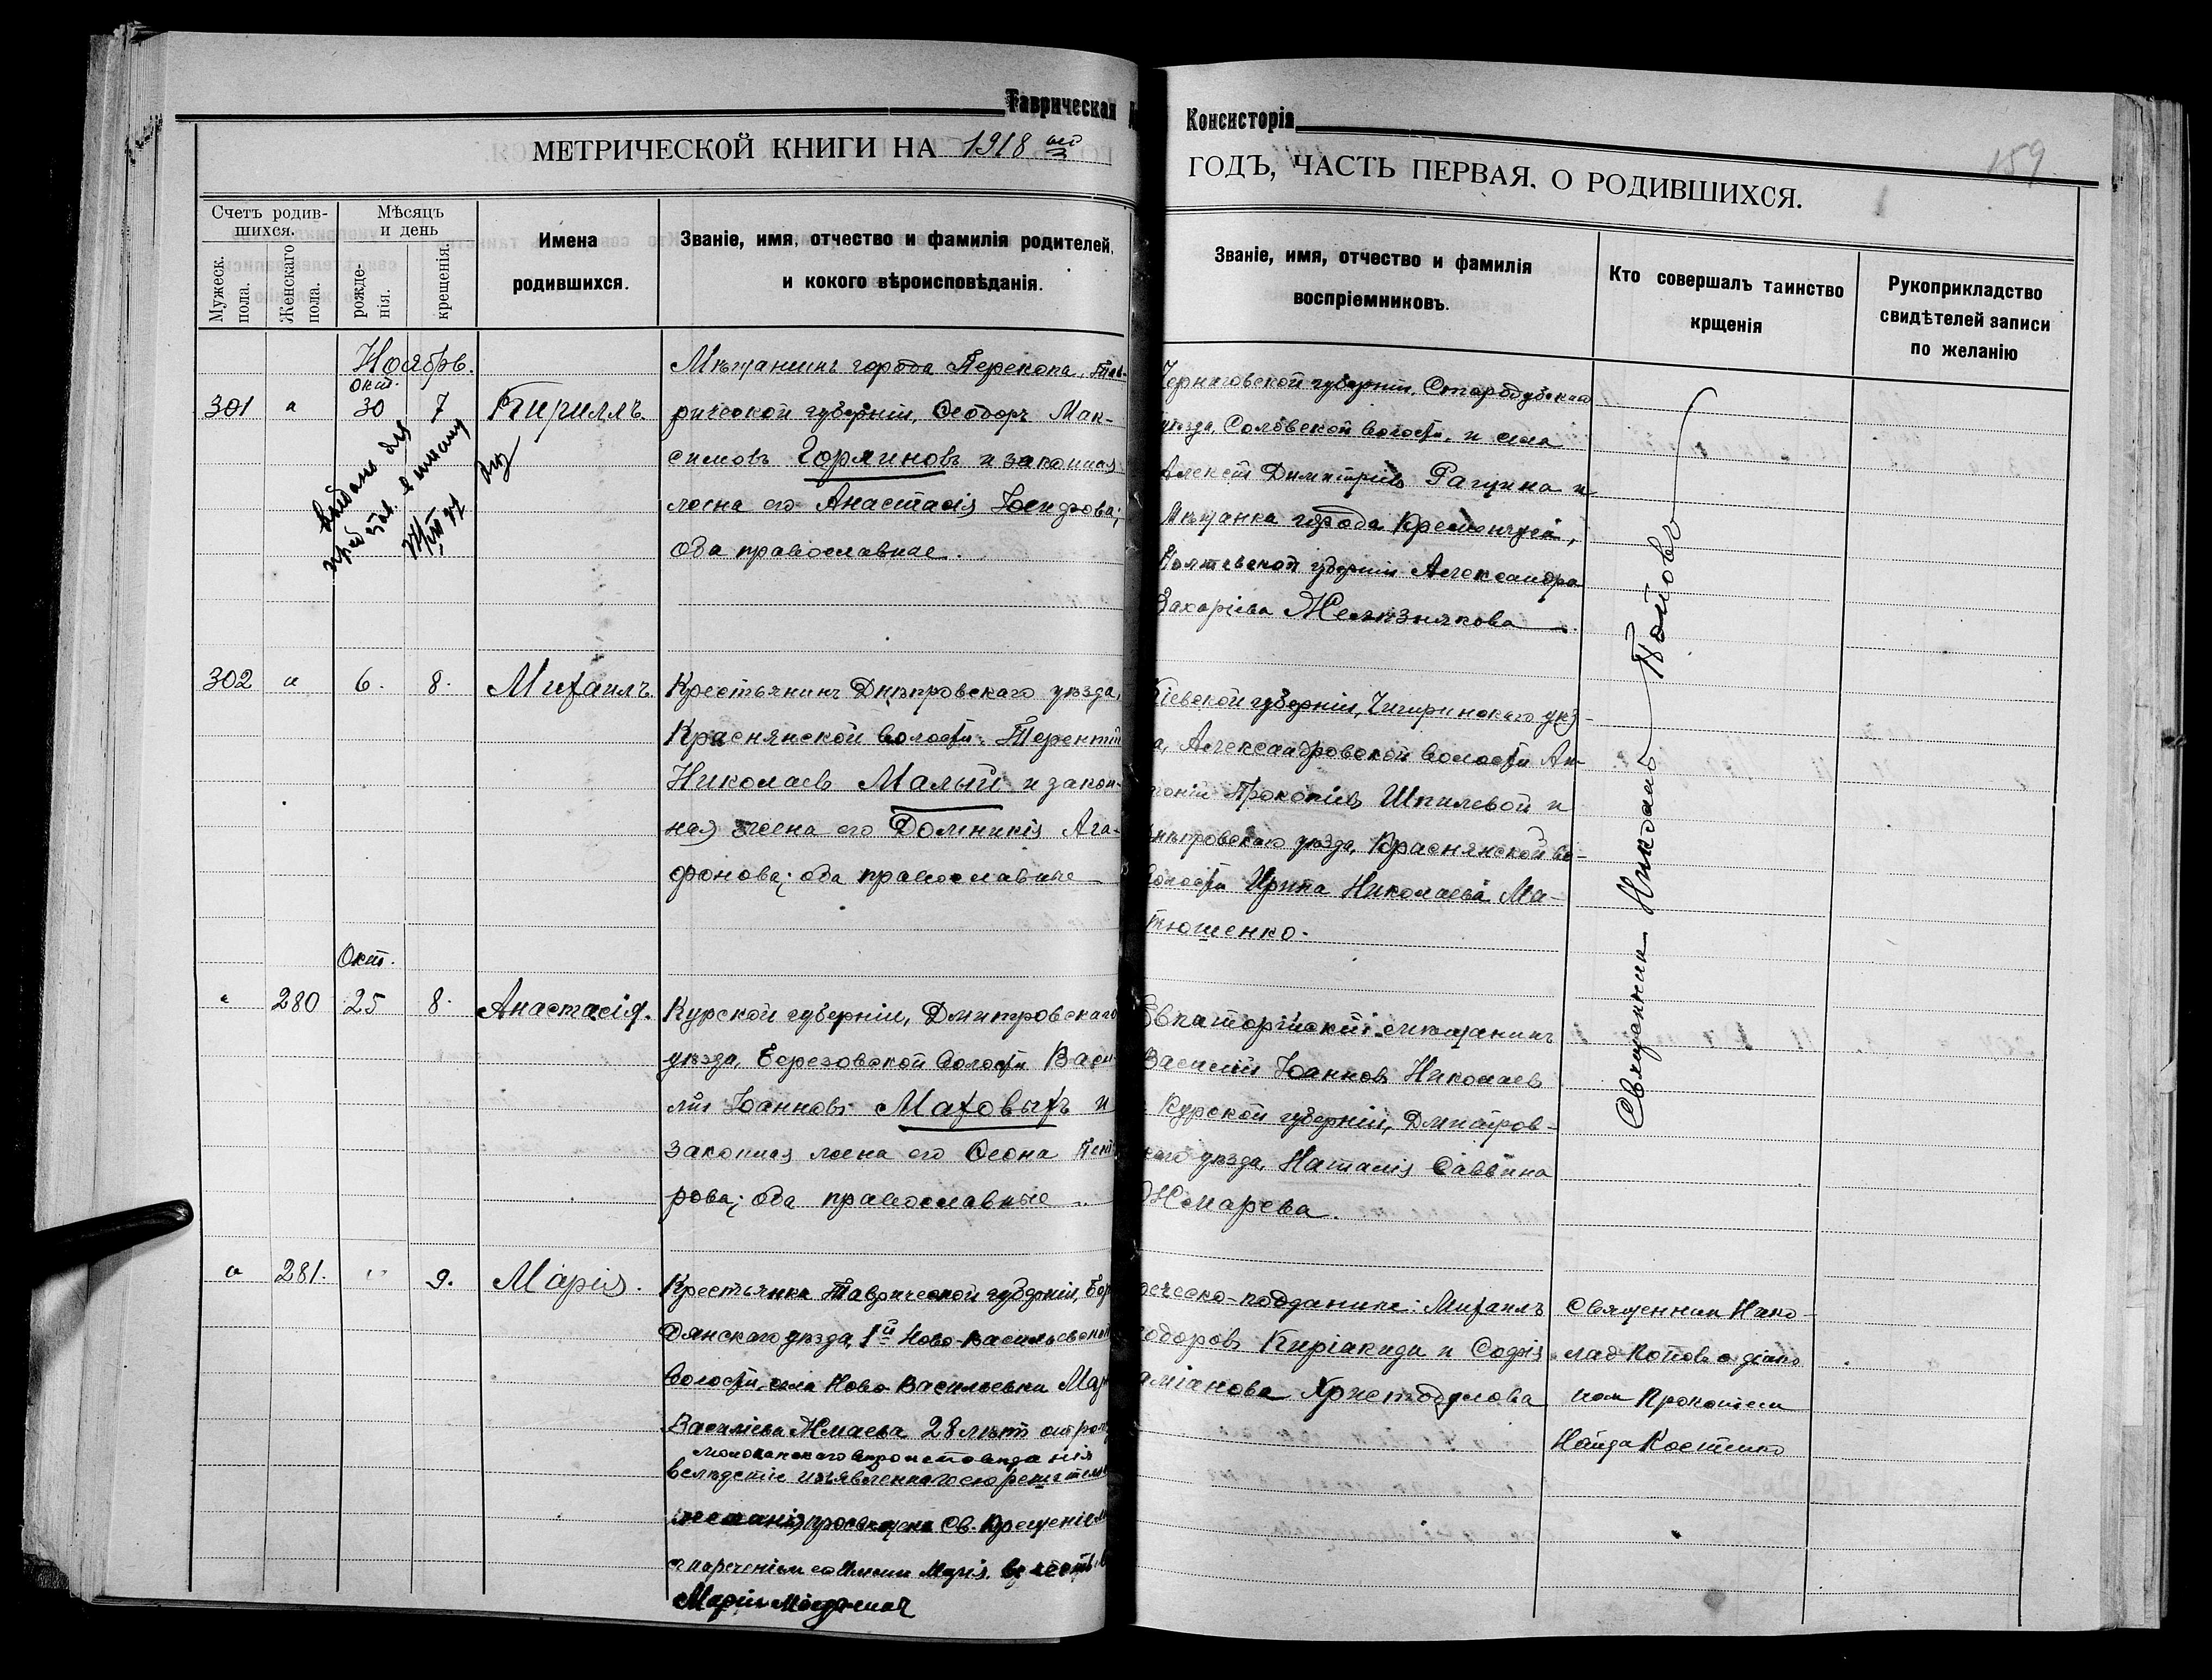 Таврическая
Консисторія
МЕТРИЧЕСКОЙ КНИГИ НА 1918 ый
ГОДЪ, ЧАСТЬ ПЕРВАЯ, О РОДИВШИХСЯ.
159
Счетъ родив-
шихся.
Мужеск. пола.
Женскаго пола.
Мѣсяцъ
и день
рожде-
нія.
крещенія.
Имена
родившихся.
Званіе, имя, отчество и фамилія родителей,
и кокого вѣроисповѣданія.
Званіе, имя, отчество и фамилія
воспріемниковъ.
Кто совершалъ таинство
крщенія
Рукоприкладство
свидѣтелей записи
по желанію
Ноябрь.
Окт.
301 " 30 7 Кириллъ.
Мѣщанинъ города Перекопа, Тав-
рической губерніи, Ѳеодоръ Мак-
симовъ Горяиновъ и законная
жена его Анастасія
оба православные.
Черниговской губерніи, Стародубскаго
уѣзда, Соловской волости, и села
Алексій Димитріевъ Рагуина и
Мѣщанка города Кременчуга,
Полтавской губерніи Александра
Захаріева Желѣзнякова
302 " 6. 8. Михаилъ
Крестьянинъ Днѣпровскаго уѣзда,
Краснянской волости, Терентій
Николаевъ Малый и закон-
ная жена его Домникія Ага-
фонова; оба православные
Кіевской губерніи, Чигиринскаго уѣз-
а, Александровской волости Ан-
тоній Прокопіевъ Шпилевой и
нѣпровскаго уѣзда, Краснянской во-
лости Ирина Николаева Ма-
тюшенко.
Окт.
" 280 25 8. Анастасія.
Курской губерніи, Дмитровскаго
уѣзда, Березовской волости Васи-
лій Іоанновъ Маховыхъ и
законная жена его Ѳеона Пет
рова; оба православные.
Евпаторійскій мѣщанинъ
Василій Іоанновъ Николаевъ
Курской губерніи, Дмитров-
каго уѣзда, Наталія Саввина
Жмарева.
Священникъ Николай Поповъ
" 281. " 9. Марія.
Крестьянка Таврической губерніи, Бер
дянскаго уѣзда, 1й Ново-Васильевской
волости, села Ново-Васильевки Мар
Василіева Жмаева 28 лѣтъ отроду
молоканскаго вѣроисповѣданія
вслѣдствіе изъявленнаго ею
желанія просвѣщена Св. Крещеніемъ
съ нареченіемъ ей имени Марія, въ честь
Маріи Магдалины
реческо-подданные: Михаилъ
еодоровъ Киріакиди и Софія
аміанова Христодулова
Священникъ Нико-
лай Поповъ съ діако
номъ Прокопіемъ
Найда Костенко